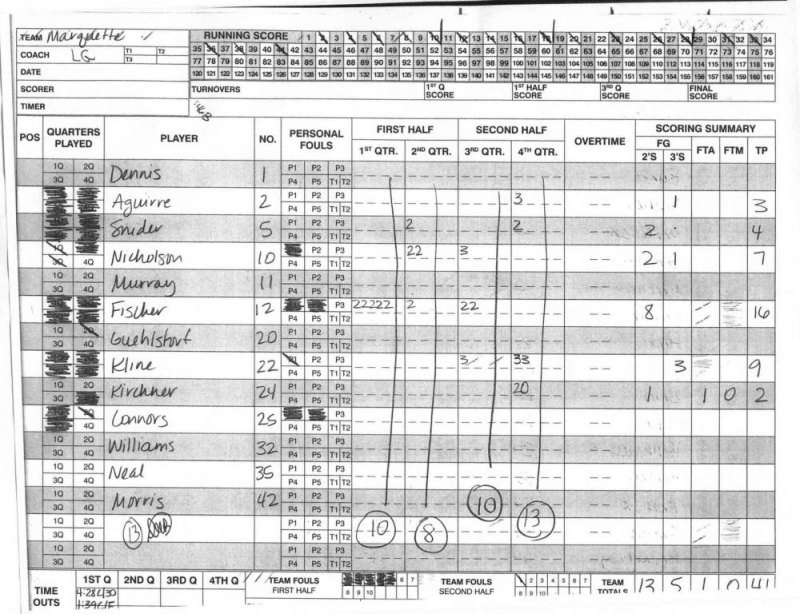 TEAM Marquette RUNNING SCORE 1 2 3 4 5 6 7 8 9 10 11 12 13 14 15 16 17 18 19 20 21 22 23 24 25 26 27 28 29 30 31 32 33 34
COACH LG T1 T2 T3 35 36 37 38 39 40 41 42 43 44 45 46 47 48 49 50 51 52 53 54 55 56 57 58 59 60 61 62 63 64 65 66 67 68 69 70 71 72 73 74 75 76
77 78 79 80 81 82 83 84 85 86 87 88 89 90 91 92 93 94 95 96 97 98 99 100 101 102 103 104 105 106 107 108 109 110 111 112 113 114 115 116 117 118 119
DATE 120 121 122 123 124 125 126 127 128 129 130 131 132 133 134 135 136 137 138 139 140 141 142 143 144 145 146 147 148 149 150 151 152 153 154 155 156 157 158 159 160 161
SCORER TURNOVERS 1ST Q SCORE 1ST HALF SCORE 3RD Q SCORE FINAL SCORE
TIMER
POS QUARTERS PLAYED PLAYER NO. PERSONAL FOULS FIRST HALF SECOND HALF OVERTIME SCORING SUMMARY
1ST QTR. 2ND QTR. 3RD QTR. 4TH QTR. FG 2'S 3'S FTA FTM TP
1Q 2Q 3Q 4Q Dennis 1 P1 P2 P3 P4 P5 T1 T2
Aguirre 2 P1 P2 P3 P4 P5 T1 T2 3 1 3
Snider 5 P1 P2 P3 P4 P5 T1 T2 2 2 2 4
3Q 4Q Nicholson 10 P2 P3 P4 P5 T1 T2 22 3 2 1 7
1Q 2Q 3Q 4Q Murray 11 P1 P2 P3 P4 P5 T1 T2
Fischer 12 P3 P4 P5 T1 T2 22222 2 22 8 16
1Q 2Q 3Q 4Q Guehlstorf 20 P1 P2 P3 P4 P5 T1 T2
Kline 22 P1 P2 P3 P4 P5 T1 T2 3 33 3 9
1Q 2Q 3Q Kirchner 24 P1 P2 P3 P4 P5 T1 T2 20 1 1 0 2
2Q 4Q Connors 25 P3 P4 P5 T1 T2
1Q 2Q 3Q 4Q Williams 32 P1 P2 P3 P4 P5 T1 T2
1Q 2Q 3Q 4Q Neal 35 P1 P2 P3 P4 P5 T1 T2
1Q 2Q 3Q 4Q Morris 42 P1 P2 P3 P4 P5 T1 T2 10
1Q 2Q 3Q 4Q 13 P1 P2 P3 P4 P5 T1 T2 10 8 13
1Q 2Q 3Q 4Q P1 P2 P3 P4 P5 T1 T2
TIME OUTS 1ST Q 2ND Q 3RD Q 4TH Q TEAM FOULS FIRST HALF 6 7 8 9 10 TEAM FOULS SECOND HALF 1 2 3 4 5 6 7 8 9 10 TEAM TOTALS 13 5 1 0 41